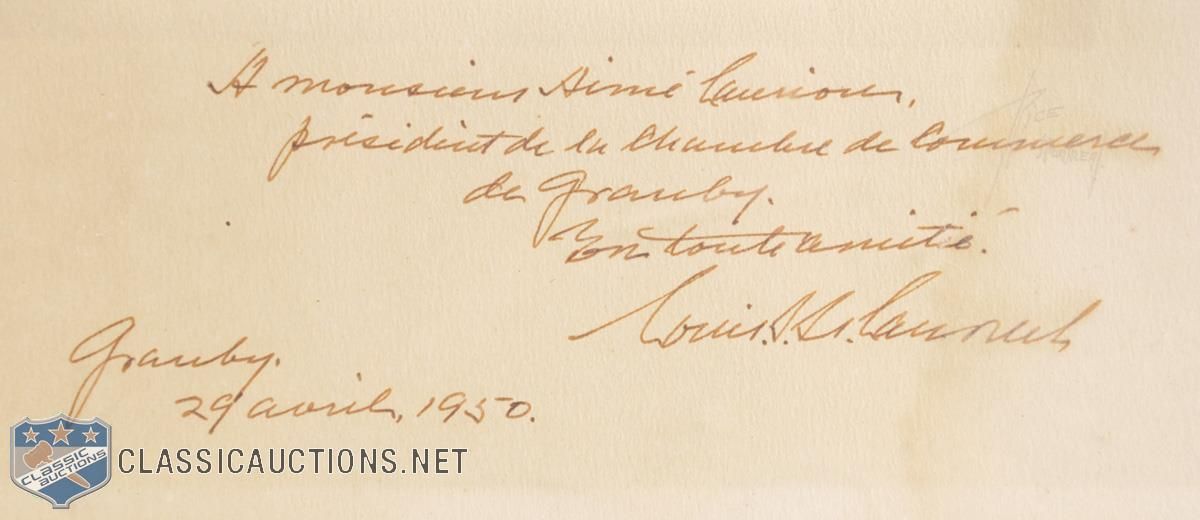 A monsieur Aimé Laurion,
président de la Chambre de Commerce
de Granby.
En toute amitié.
Louis S. St. Laurent
Granby.
29 avril, 1950.
CLASSIC AUCTIONS
CLASSICAUCTIONS.NET